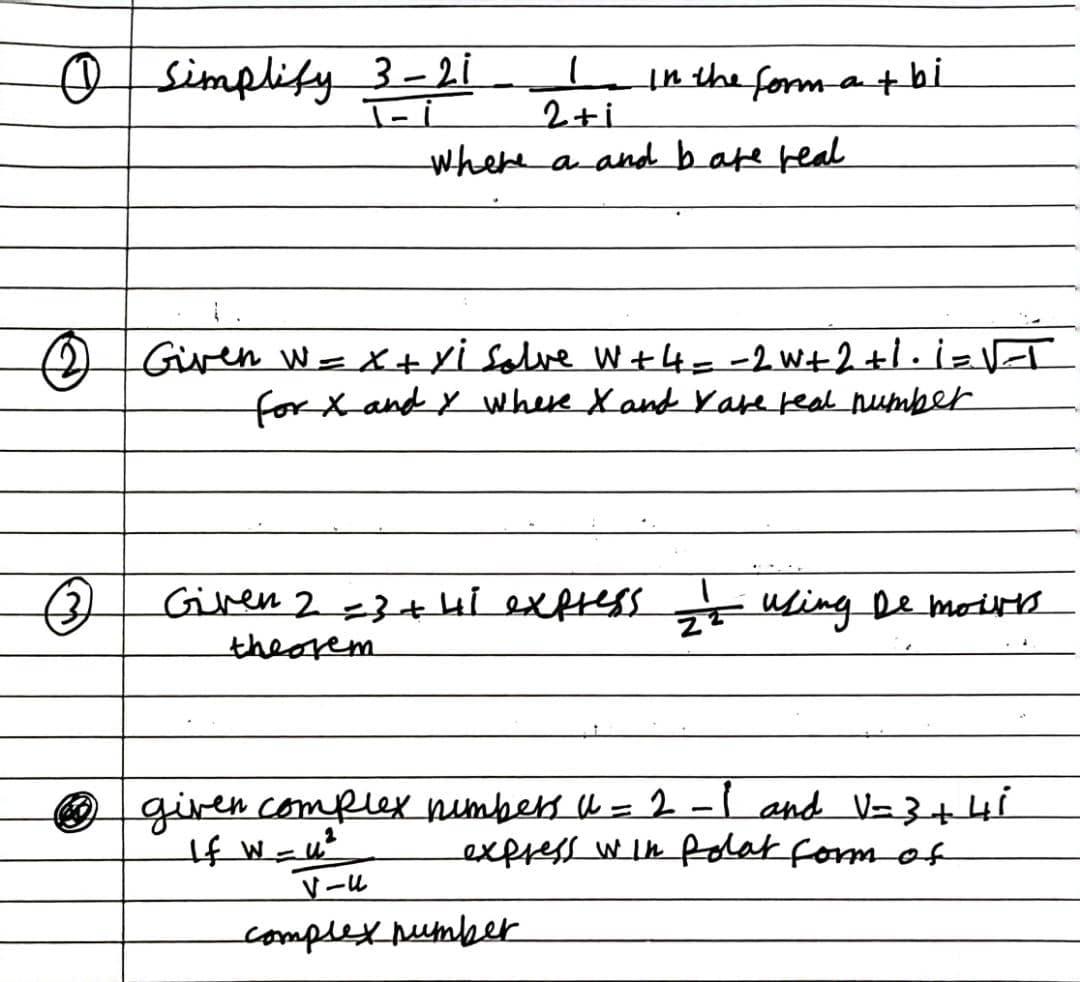 ① Simplify \frac{3-2i}{1-i} - \frac{1}{2+i} in the form a + bi
where a and b are real
② Given w = x + yi Solve w + 4 = -2w + 2 + 1. i = √-1
for x and y where x and y are real number
③ Given 2 = 3 + 4i express \frac{1}{z^2} using De moivrs
theorem
given complex numbers u = 2 - i and v = 3 + 4i
If w = \frac{u^2}{v-u} express w in polar form of
complex number